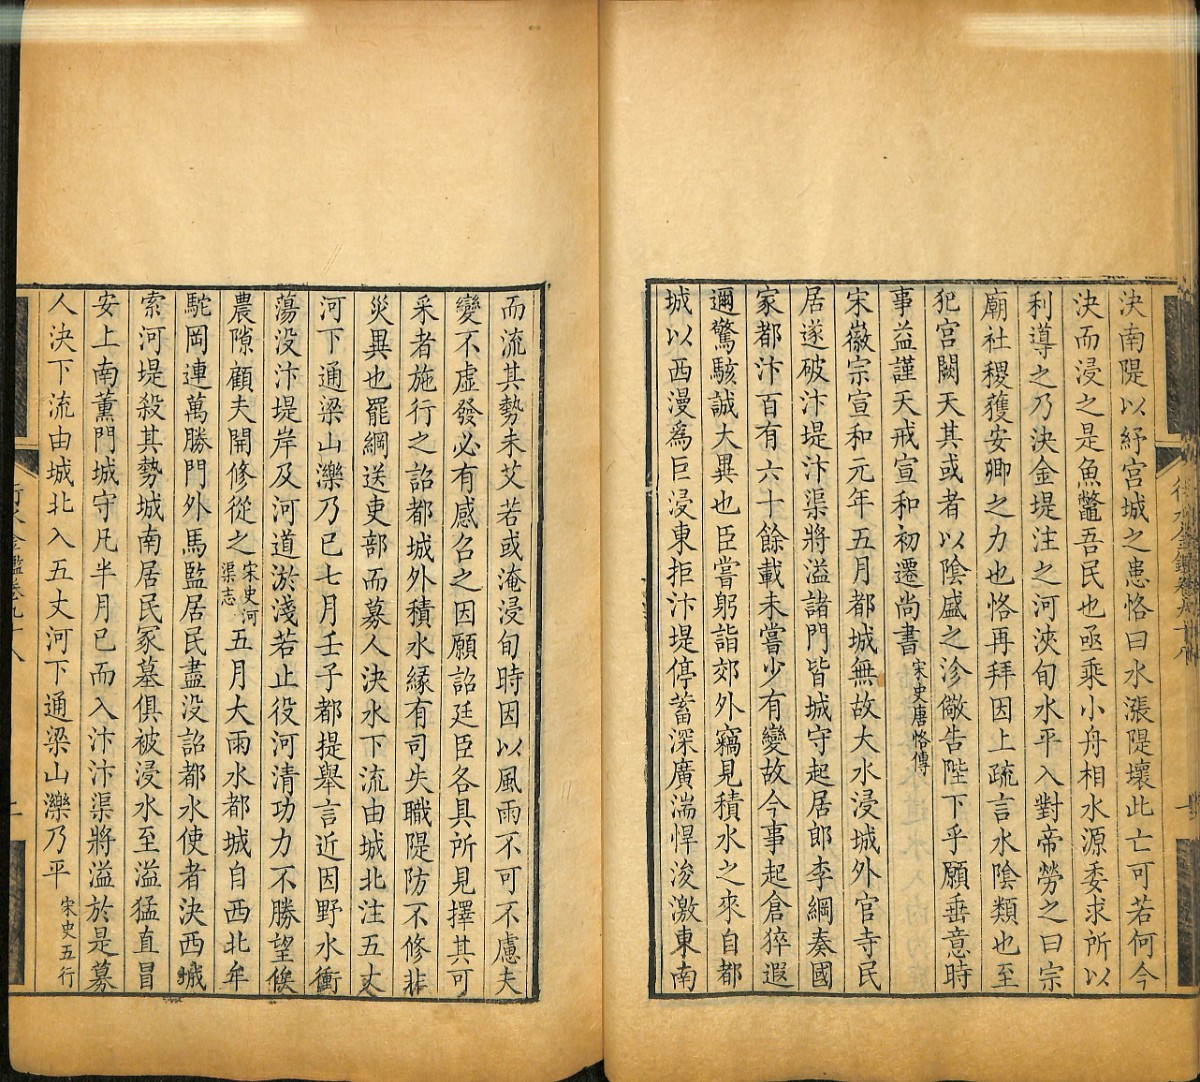 決南隄以紓宮城之患恪曰水漲隄壞此亡可若何今
決而浸之是魚鼈吾民也亟乘小舟相水源委求所以
利導之乃決金堤注之河浹旬水平入對帝勞之曰宗
廟社稷獲安卿之力也恪再拜因上疏言水陰類也至
犯宮闕天其或者以陰盛之沴儆告陛下乎願垂意時
事益謹天戒宣和初遷尚書宋史唐恪傳
宋徽宗宣和元年五月都城無故大水浸城外官寺民
居遂破汴堤汴渠將溢諸門皆城守起居郎李綱奏國
家都汴百有六十餘載未嘗少有變故今事起倉猝遐
邇驚駭誠大異也臣嘗躬詣郊外竊見積水之來自都
城以西漫爲巨浸東拒汴堤停蓄深廣湍悍浚激東南
而流其勢未艾若或淹浸旬時因以風雨不可不慮夫
變不虛發必有感召之因願詔廷臣各具所見擇其可
采者施行之詔都城外積水緣有司失職隄防不修非
災異也罷綱送吏部而募人決水下流由城北注五丈
河下通梁山濼乃已七月壬子都提舉言近因野水衝
蕩沒汴堤岸及河道淤淺若止役河清功力不勝望俟
農隙顧夫開修從之宋史河渠志五月大雨水都城自西北牟
駝岡連萬勝門外馬監居民盡沒詔都水使者決西城
索河堤殺其勢城南居民冢墓俱被浸水至溢猛直冒
安上南薰門城守凡半月已而入汴汴渠將溢於是募
人決下流由城北入五丈河下通梁山濼乃平宋史五行
行水金鑑卷九十八